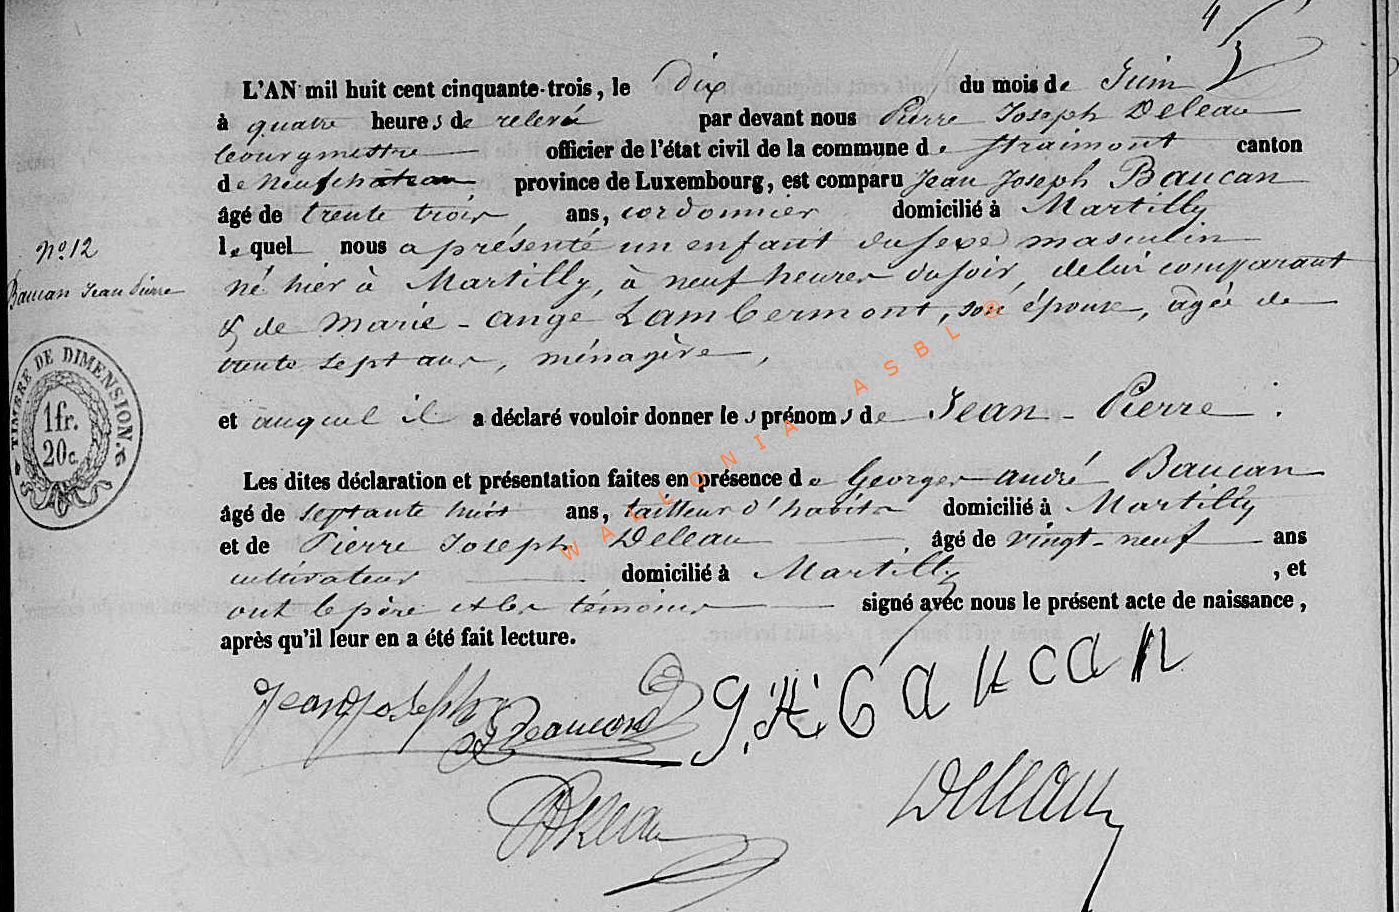 4
5
L'AN mil huit cent cinquante-trois, le Dix du mois de Juin
à quatre heures de relevée par devant nous Pierre Joseph Deleau
bourgmestre officier de l'état civil de la commune de Straimont canton
de Neufchâteau province de Luxembourg, est comparu Jean Joseph Baucan
âgé de trente trois ans, cordonnier domicilié à Martilly
lequel nous a présenté un enfant du sexe masculin
né hier à Martilly, à neuf heures du soir, de lui comparant
& de Marie-Ange Lambermont, son épouse, âgée de
trente sept ans, ménagère,
et auquel il a déclaré vouloir donner les prénoms de Jean-Pierre.
Les dites déclaration et présentation faites en présence de Georges André Baucan
âgé de septante huit ans, tailleur d'habits domicilié à Martilly
et de Pierre Joseph Deleau, âgé de vingt-neuf ans
cultivateur domicilié à Martilly, et
ont le père et les témoins signé avec nous le présent acte de naissance,
après qu'il leur en a été fait lecture.
No. 12
Baucan Jean Pierre
TIMBRE DE DIMENSION.
1 fr.
20 c.
Jean Joseph Beaucand
g. A Baucan
Deleau
WALLONIA ASBL ®